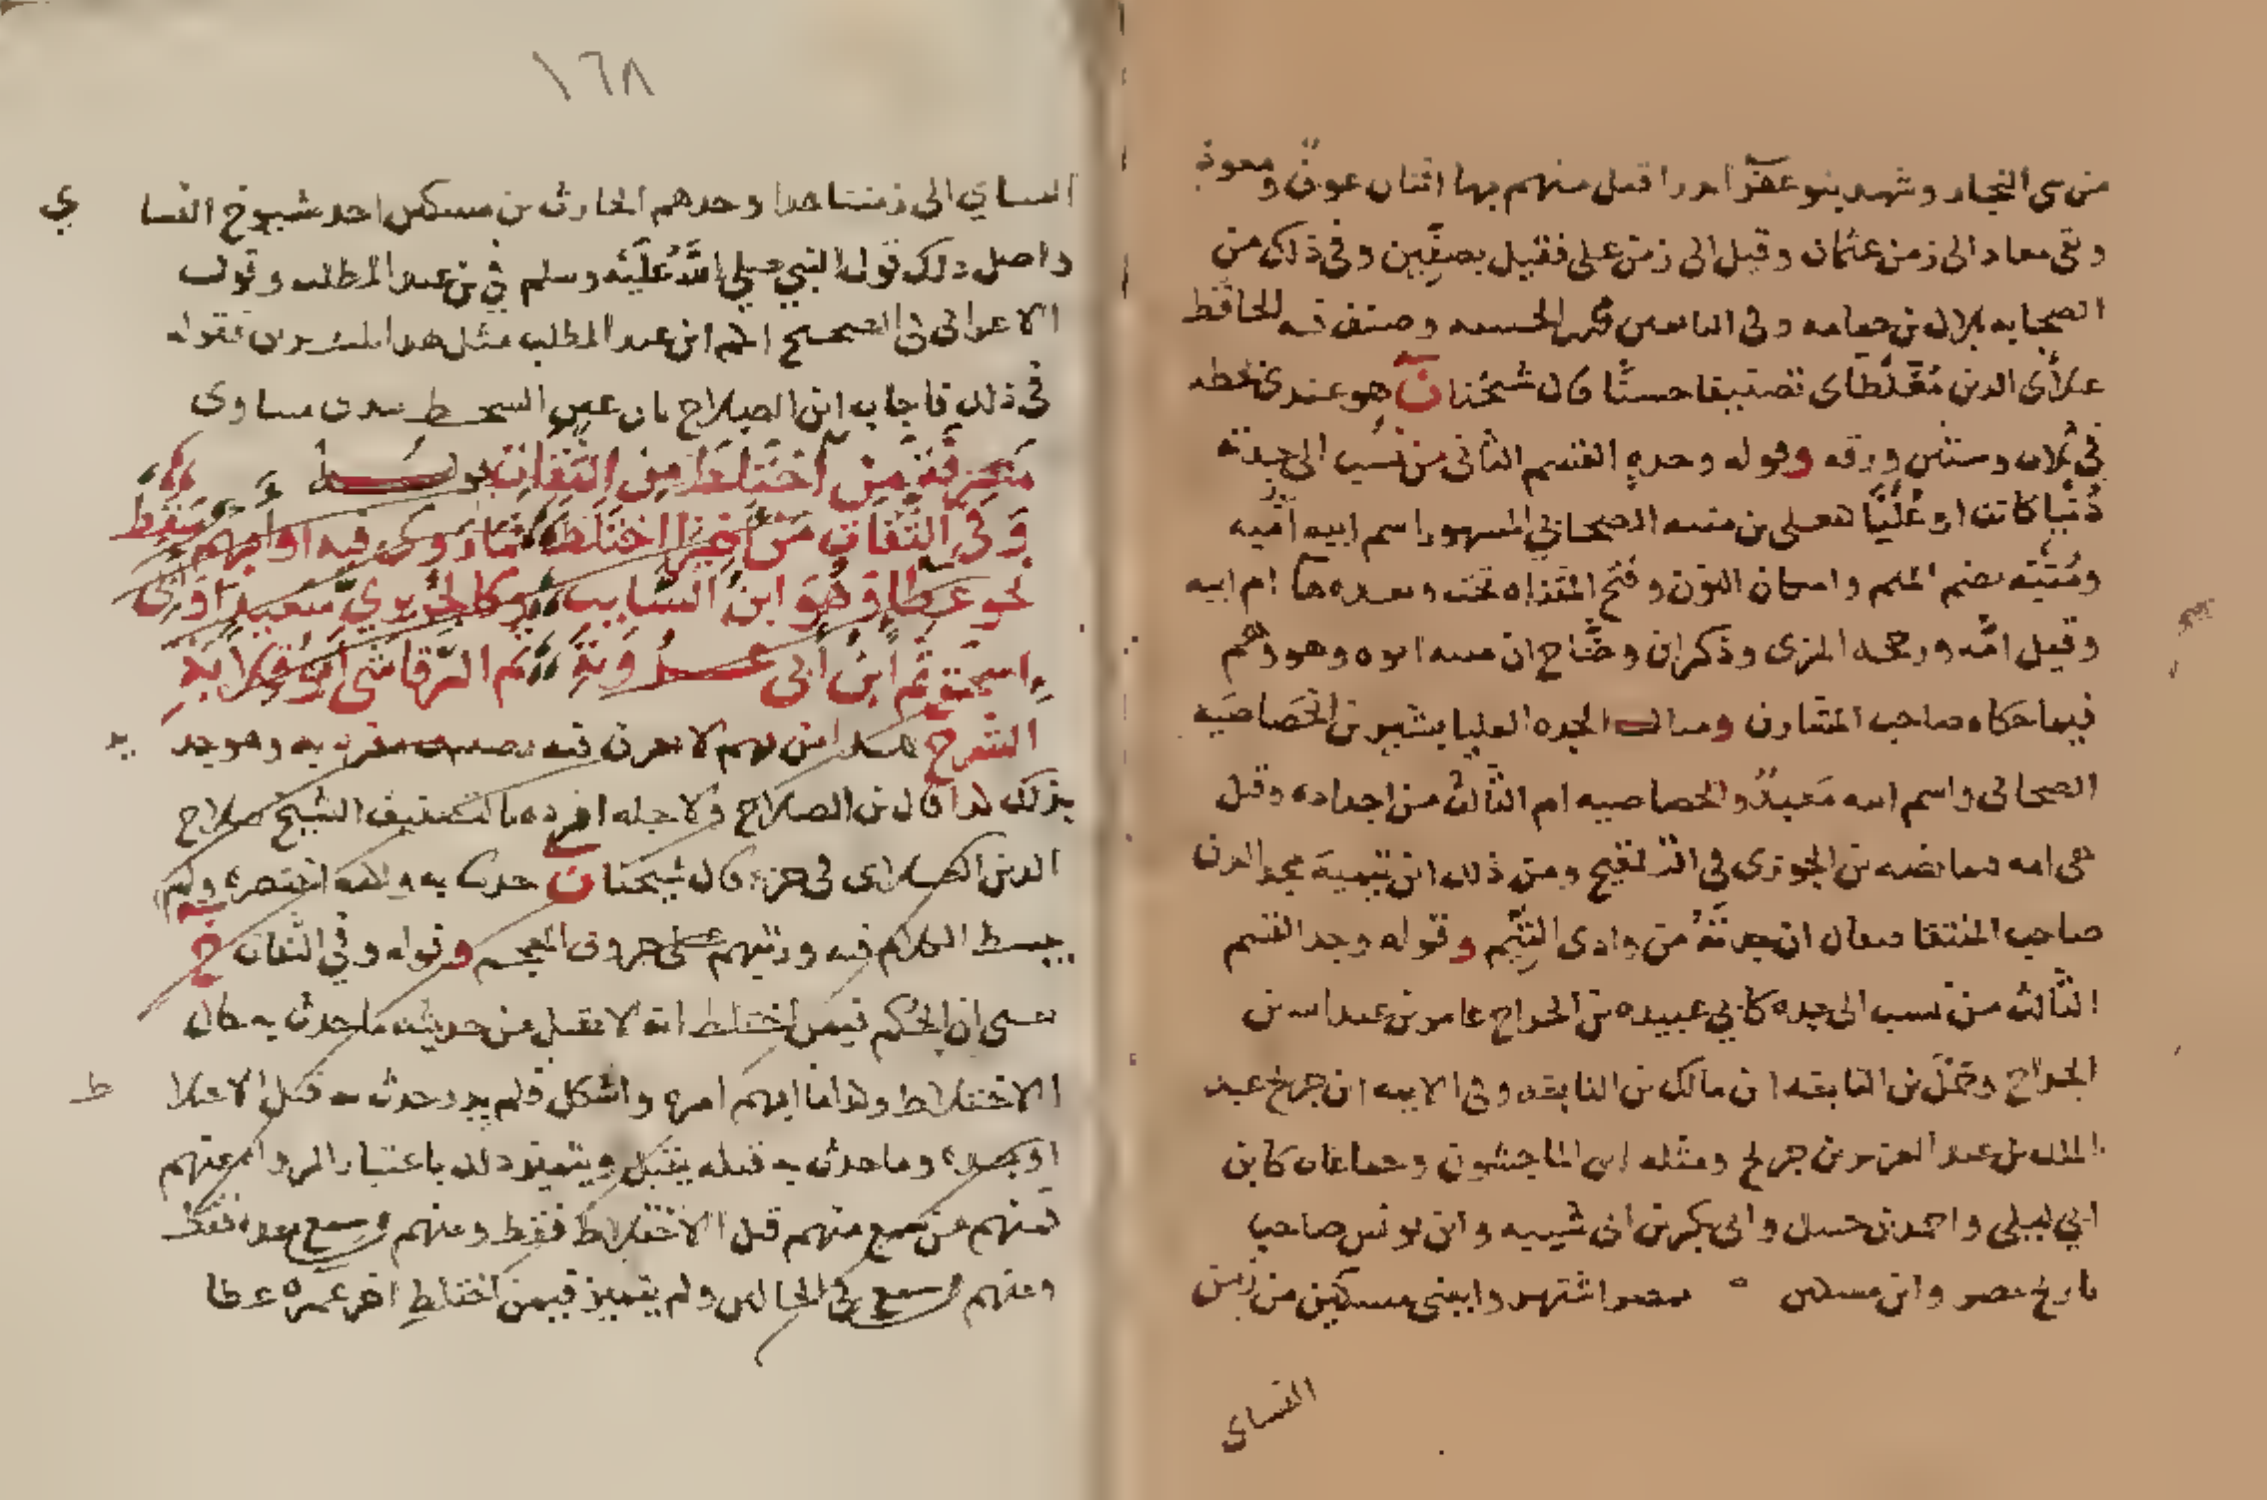 من بني النجار وشهد بنو عفرا بدرا قتل منهم بها اثنان عوف ومعوذ
وبقى معاذ الى زمن عثمان وقيل الى زمن على فقتل بصفين وفى ذلك من
الصحابه بلال بن حمامه وفى التابعين محمد بن الحنفيه وصنف فيه الحافظ
علاى الدين مغلطاى تصنيفا حسنا قال شيخنا ن هو عندى بخطه
فى ثلاث وستين ورقه وقوله وحده القسم الثانى من نسب الى جدته
دنيا كانت او عليا كيعلى بن منيه الصحابي المشهور اسم ابيه اميه
ومنيه بضم الميم واسكان النون وفتح المثناه تحت وبعدها ام ابيه
وقيل امه ورجحه المزى وذكر ابن وضاح ان منيه ابوه وهو وهم
فيما حكاه صاحب المشارق ومثال الجده العليا بشير بن الخصاصيه
الصحابى واسم ابيه معبد والخصاصيه ام الثالث من اجداده وقيل
هى امه بن الجوزى فى التلقيح ومن ذلك ابن تيميه مجد الدين
صاحب المنتقا يقال ان جدته من وادى التيم وقوله وجد القسم
الثالث من نسب الى جده كابي عبيده بن الجراح عامر بن عبد الله بن
الجراح وحمل بن النابغه ابن مالك بن النابغه وفى الايمه ابن جريج عبد
الملك بن عبد العزيز بن جريج ومثله ابن الماجشون وجماعات كابن
ابي ليلى واحمد بن حنبل وابى بكر بن ابى شيبه وابن يونس صاحب
تاريخ مصر وابن مسكين مصر اشتهر وا ببنى مسكين من زمن
النساى
١٦٨
النساي الى زمننا هذا وجدهم الحارث بن مسكين احد شيوخ النسا
ي
واصل ذلك قول النبي صلي الله عليه وسلم في بن عبد المطلب وقول
الاعرابى فى الصحيح ايكم ابن عبد المطلب مثل هذا فقوله
فى ذلك فاجاب ابن الصلاح بان عين السخط تبدى مساوى
معرفة من اختلط من الثقات
وفى الثقات من اخيرا اختلط فما روى فيه او ابهم سقط
نحو عطا وهو ابن السايب وكالجريري سعيد وابى
اسحق ثم ابن ابى عروبة ثم الرقاشى ابو قلابة
الشرح هذا فن مهم لا يعرف فيه تصنيف مفرد به وهو جد
ير
بذلك كذا قال بن الصلاح ولاجله افرده بالتصنيف الشيخ صلاح
الدين العلاى فى جزء قال شيخنا ن حدثنا به ولكنه اختصره ولم
يبسط الكلام فيه ورتبهم على حروف المعجم وقوله وفي الثقات خ
يعنى ان الحكم فيمن اختلط انه لا يقبل من حديثه ما حدث به حال
الاختلاط وكذا ما ابهم امره واشكل فلم يدر حدث به قبل الاختلا
ط
او بعده وما حدث به قبله يقبل ويتميز ذلك باعتبار الرواه عنهم
فمنهم من سمع منهم قبل الاختلاط فقط ومنهم من سمع بعده فقط
ومنهم من سمع فى الحالين ولم يتميز فيمن اختلط اخر عمره عطا